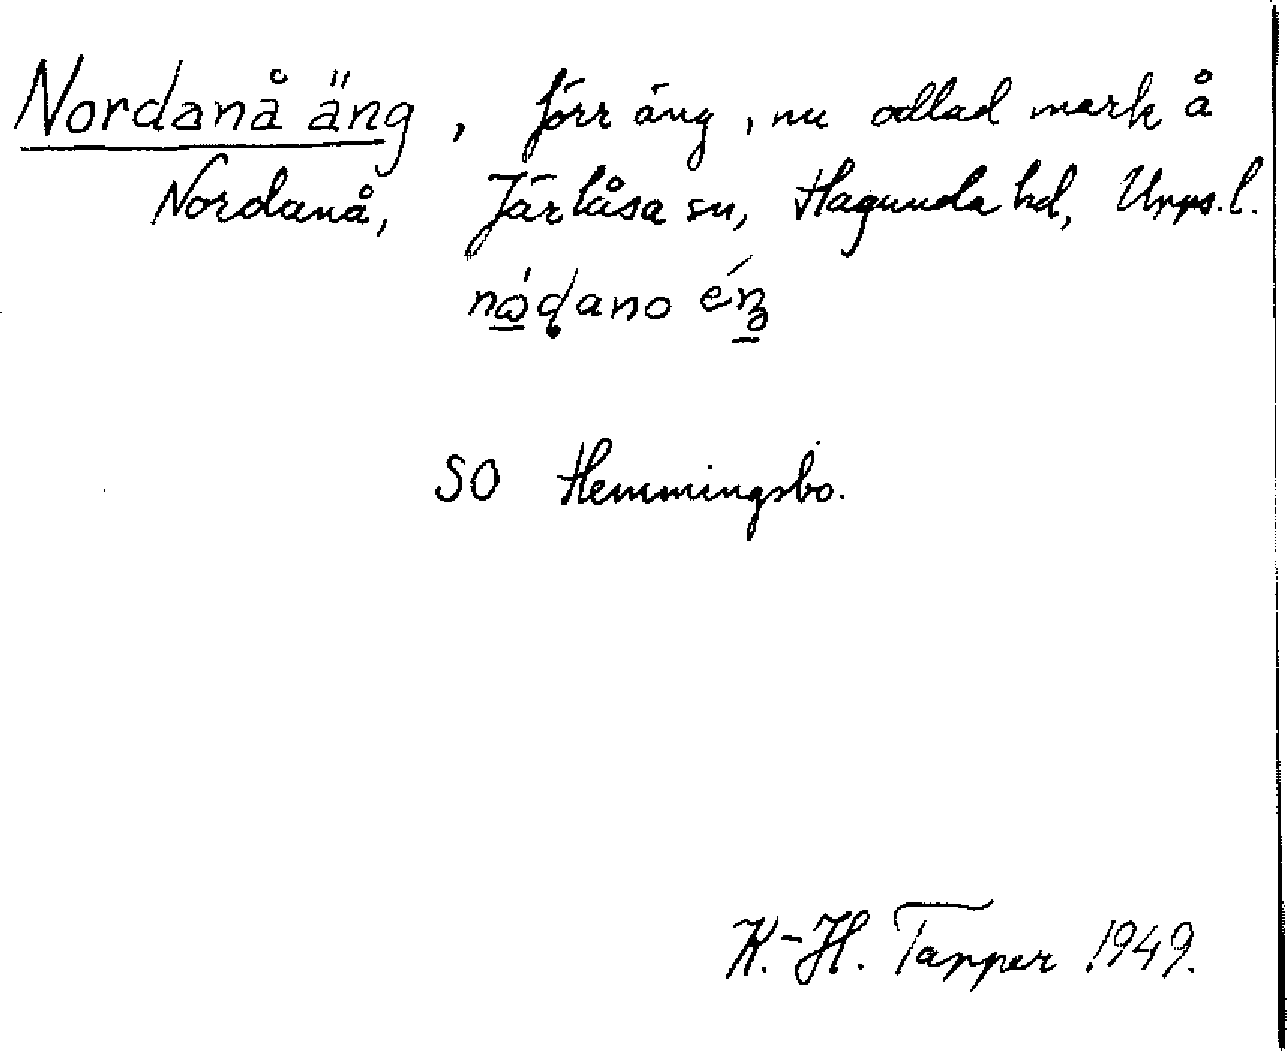 Nordanå äng, förr äng, nu odlad mark å
Nordanå, Järlåsa sn, Hagunda hd, Upps. l.
nódano éŋ
SO Hemmingsbo.
K.-H. Tapper 1949.